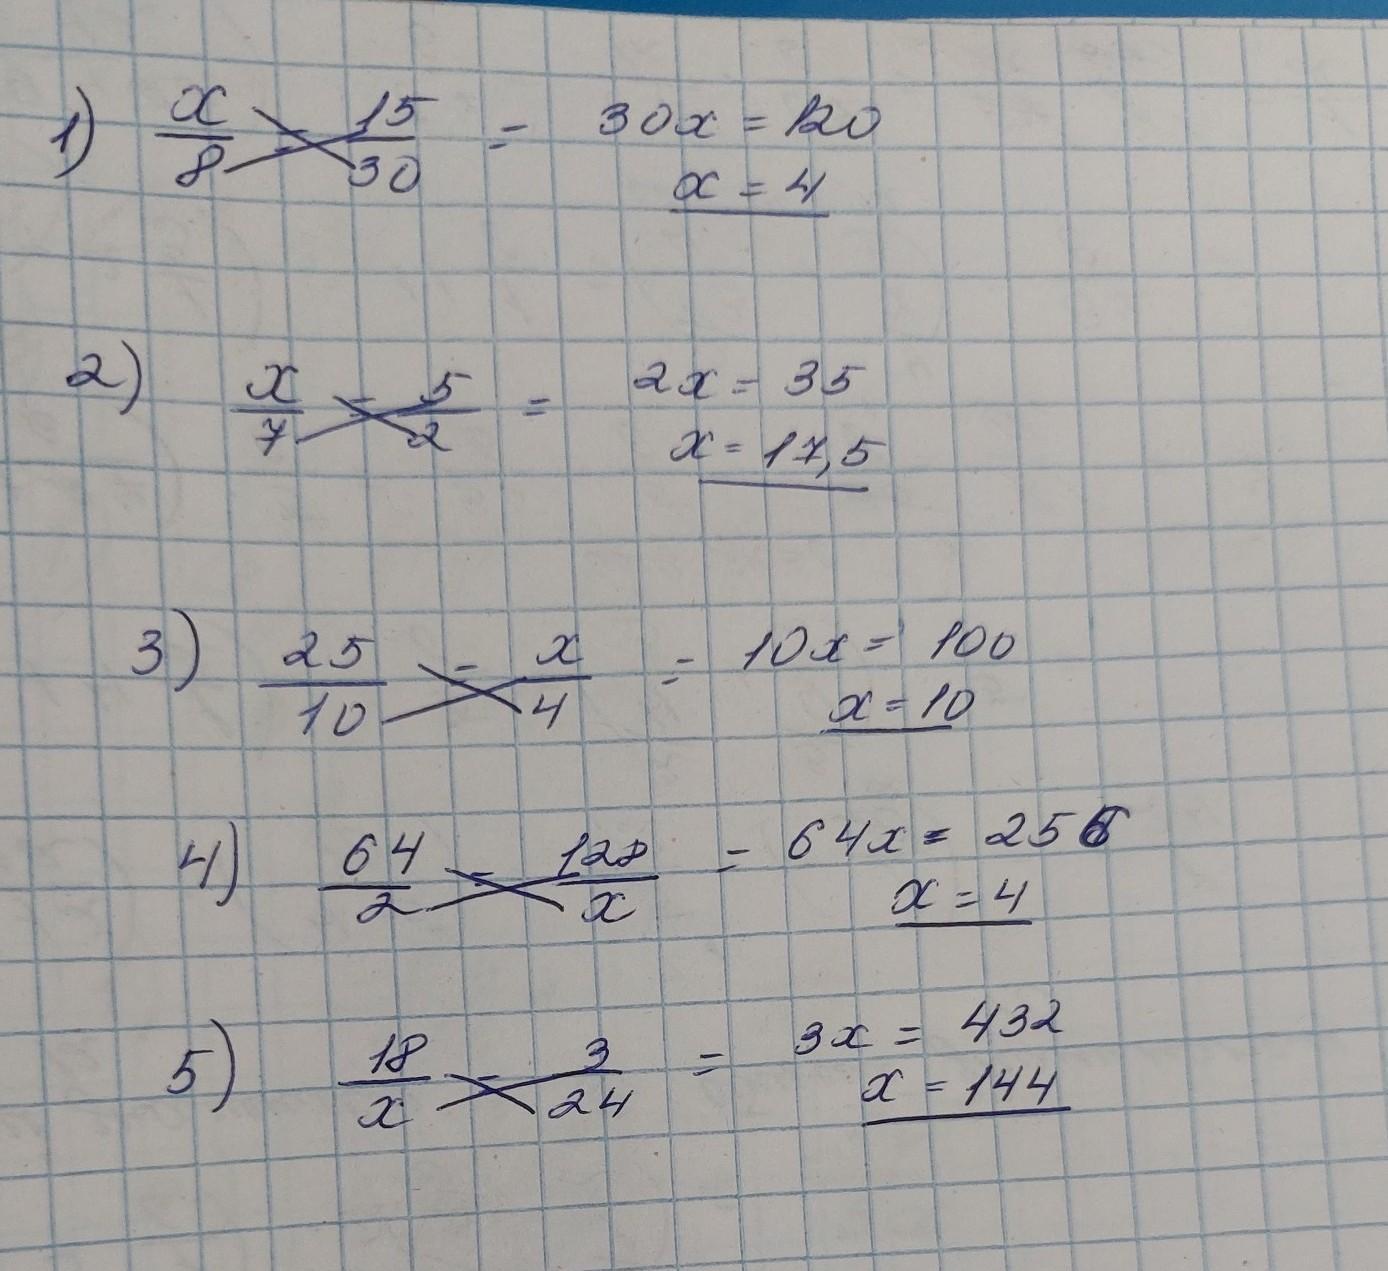 1) x/8 = 15/30 = 30x = 120
x = 4
2) x/7 = 5/2 = 2x = 35
x = 17,5
3) 25/10 = x/4 = 10x = 100
x = 10
4) 64/2 = 128/x = 64x = 256
x = 4
5) 18/x = 3/24 = 3x = 432
x = 144